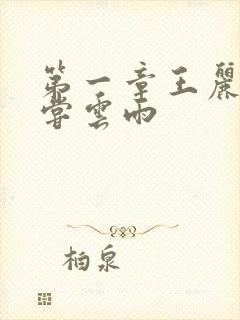 第一章王麗
嘗雲雨
柏泉